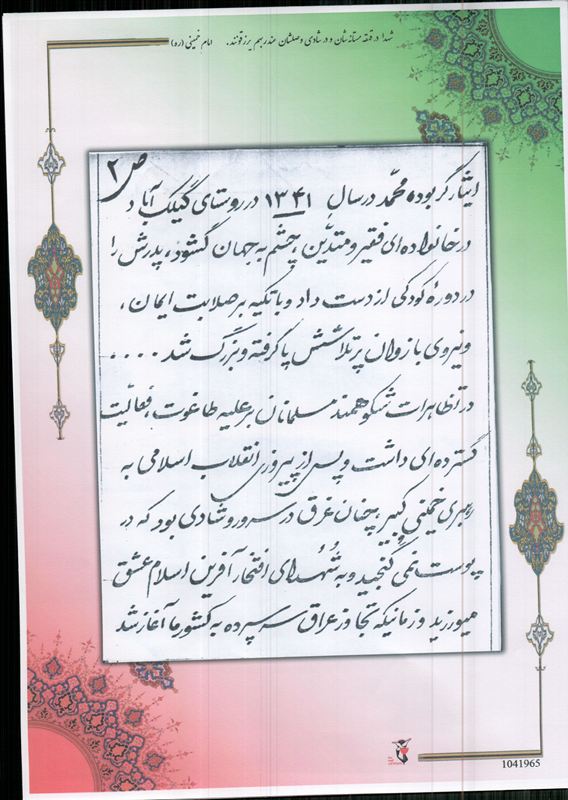 شهدا در قهقهه مستانه‌شان و در شادی وصلشان عند ربهم یرزقونند. امام خمینی (ره)
ص ۲
ایثارگر بوده محمّد در سال ۱۳۴۱ در روستای گیلک آباد
در خانواده‌ای فقیر و متدیّن چشم به جهان گشود، پدرش را
در دورهٔ کودکی از دست داد و با تکیه بر صلابت ایمان،
و نیروی بازوان پرتلاشش پا گرفته و بزرگ شد ....
در تظاهرات شکوهمند مسلمانان بر علیه طاغوت، فعالیّت
گسترده‌ای داشت و پس از پیروزی انقلاب اسلامی به
رهبری خمینی کبیر چنان غرق در سرور و شادی بود که در
پوست نمی گنجید و به شُهدای افتخار آفرین اسلام عشق
میورزید و زمانیکه تجاوز عراق سرسپرده به کشور ما آغاز شد
1041965